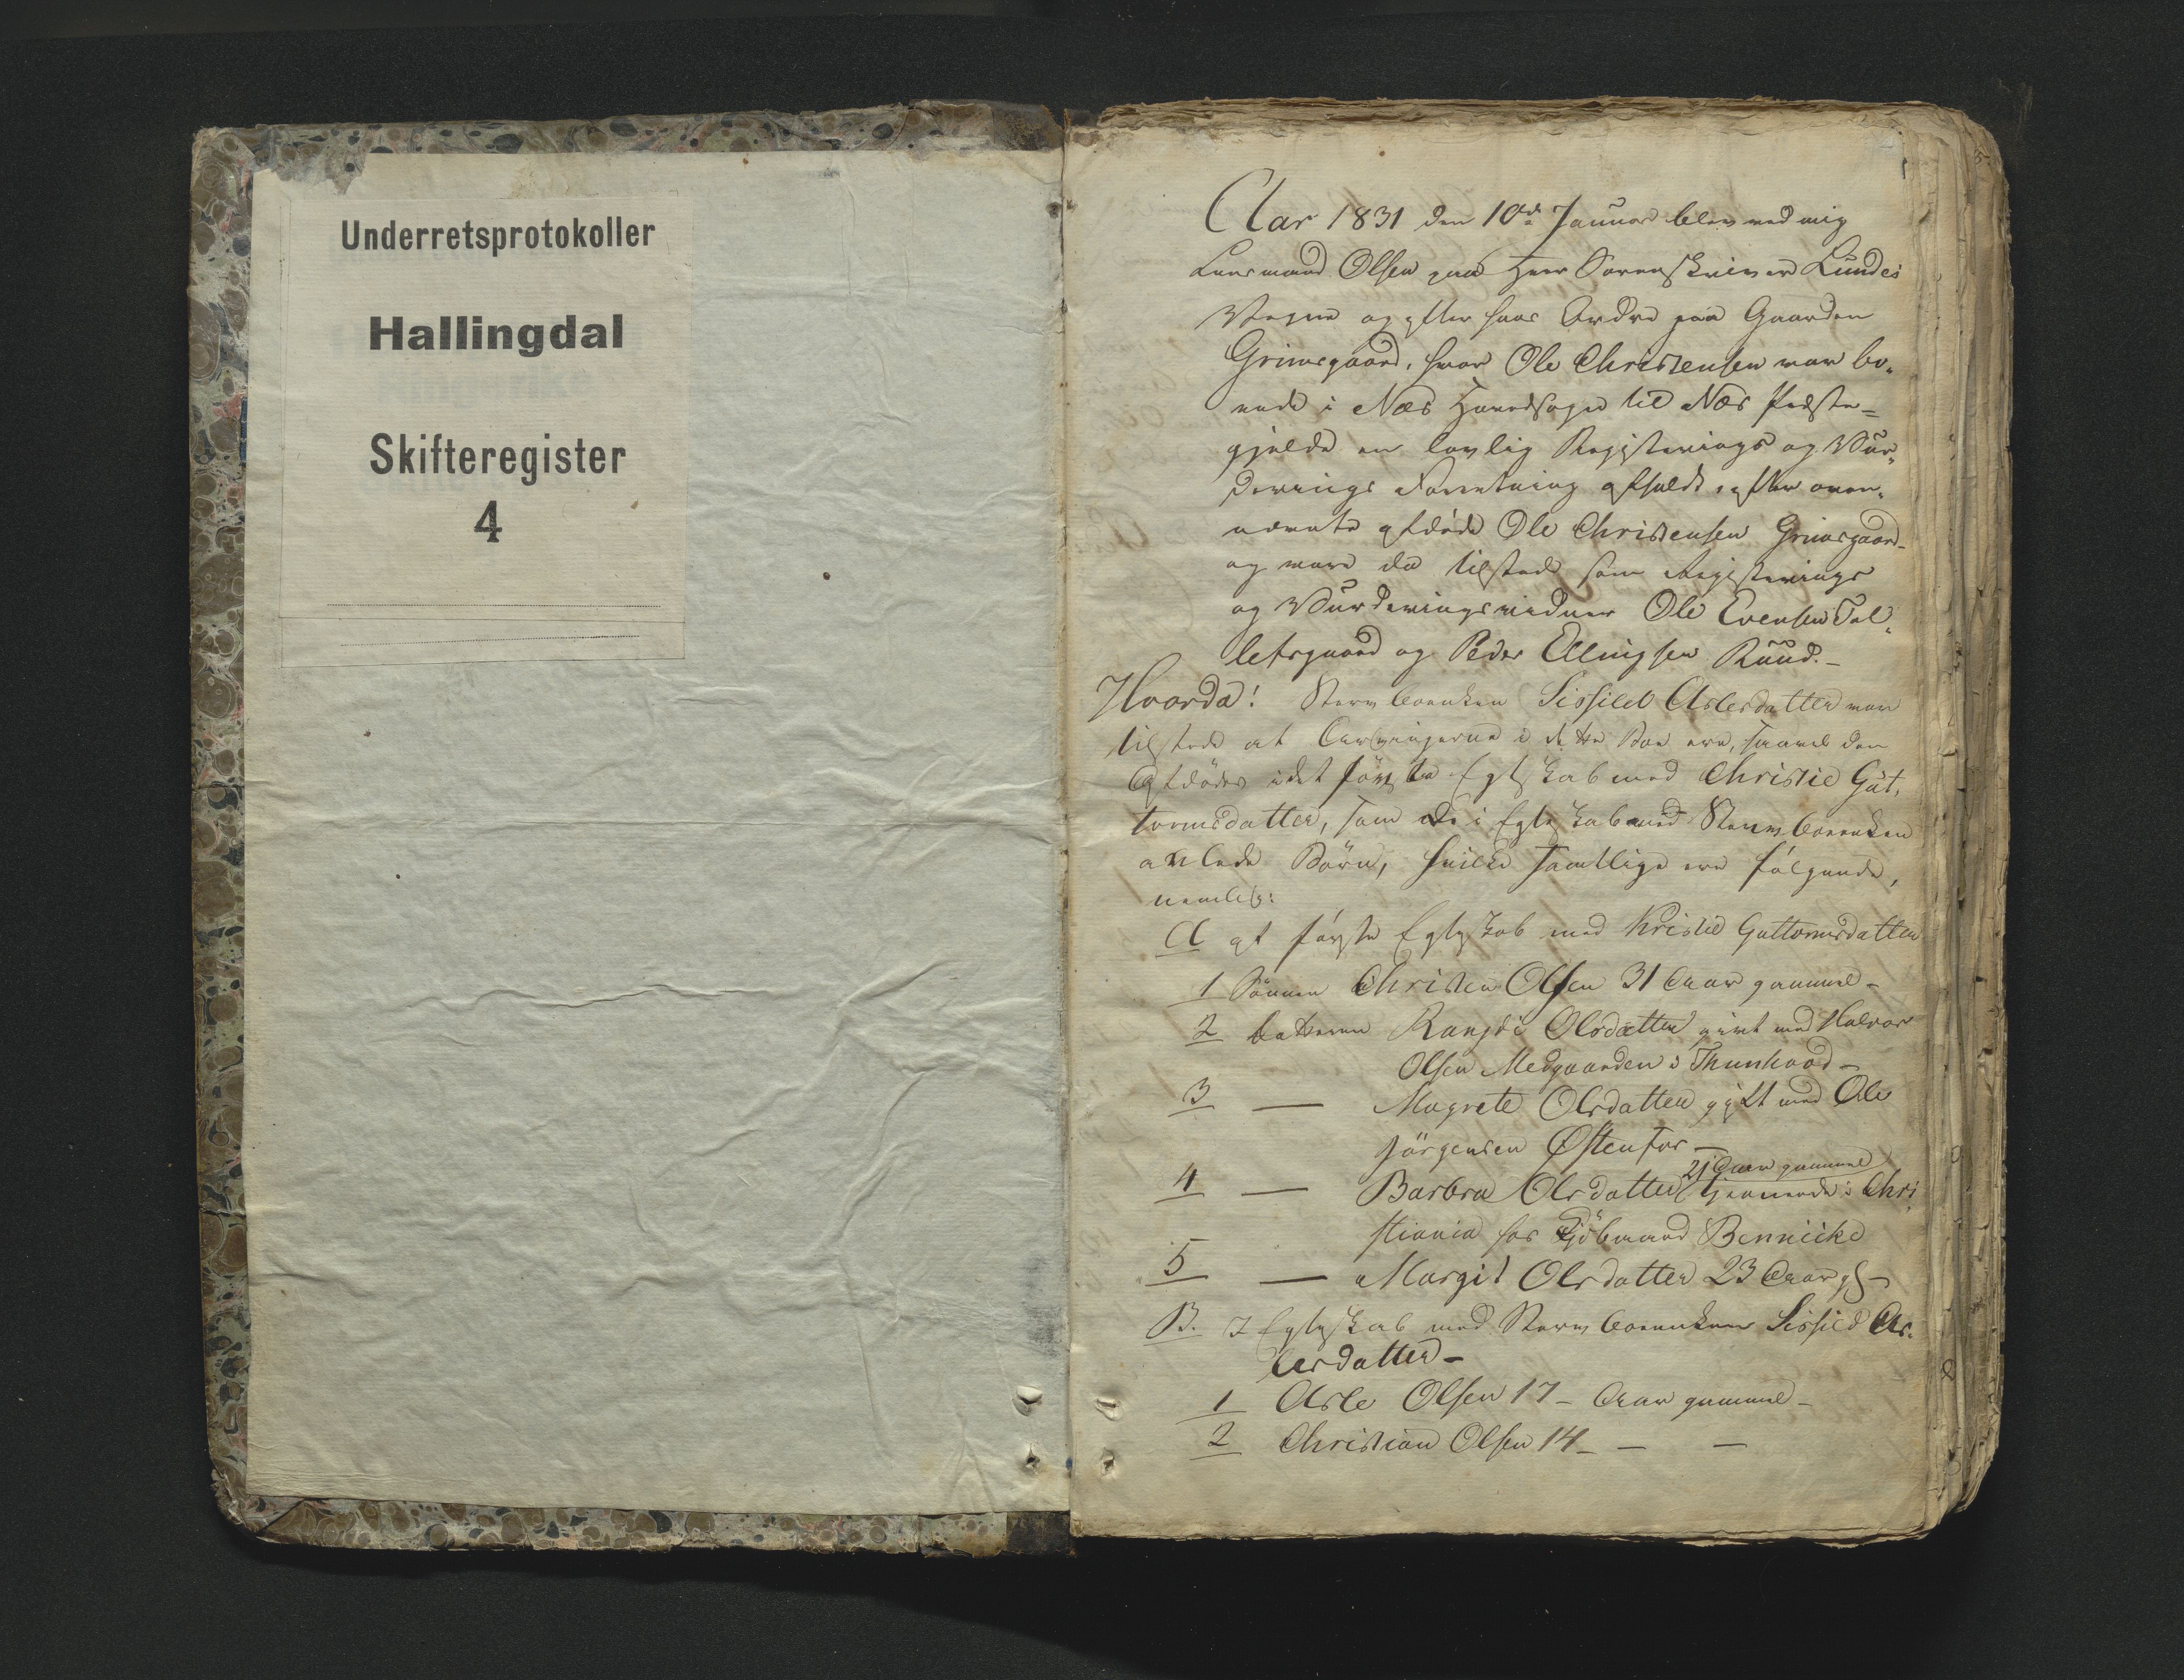 Underretsprotokoller
Hallingdal
Skifteregister
4
Aar 1831 den 10de Januar blev ved mig
Lensmand Olsen paa Herr Sorenskriver Lundes
Vegne og efter hans Ordre paa Gaarden
Grimsgaard, hvor Ole Christensen var bo„
ende i Næs Hovedsogn til Næs Præste=
gjeld en lovlig Registerings og Vur„
derings Forretning afholdt, efter oven„
nævnte afdøde Ole Christensen Grimsgaard
og vare da tilstede som Registerings
og Vurderingsvidner Ole Evensen Tol„
lefsgaard og Peder Ellingsen Ruud.—
Hvorda! Stervboenken Sissild Aslesdatter var
tilstede at Arvingerne i dette Boe ere, saavel den
Afdødes i det første Egteskab med Christie Gut„
tormsdatter, som de i Egteskab med Stervboenken
avlede Børn, hvilke samtlige ere følgende,
nemlig:
A af første Egteskab med Kristie Guttormsdatter
1 Sønnen Christen Olsen 31 Aar gammel—
2 Datteren Rangdi Olsdatter givt med Halvor
Olsen Medgaarden i Thunhovd—
3 — Magrete Olsdatter gift med Ole
Jørgensen Østenfor—
4 — Barbra Olsdatter 25 Aar gammel tjenende i Chri„
stiania hos Kjøbmand Bennicke
5 — Margit Olsdatter 23 Aar gl—
B. I Egteskab med Stervboenken Sissild As„
lesdatter—
1 Asle Olsen 17 — Aar gammel—
2 Christian Olsen 14 — — —